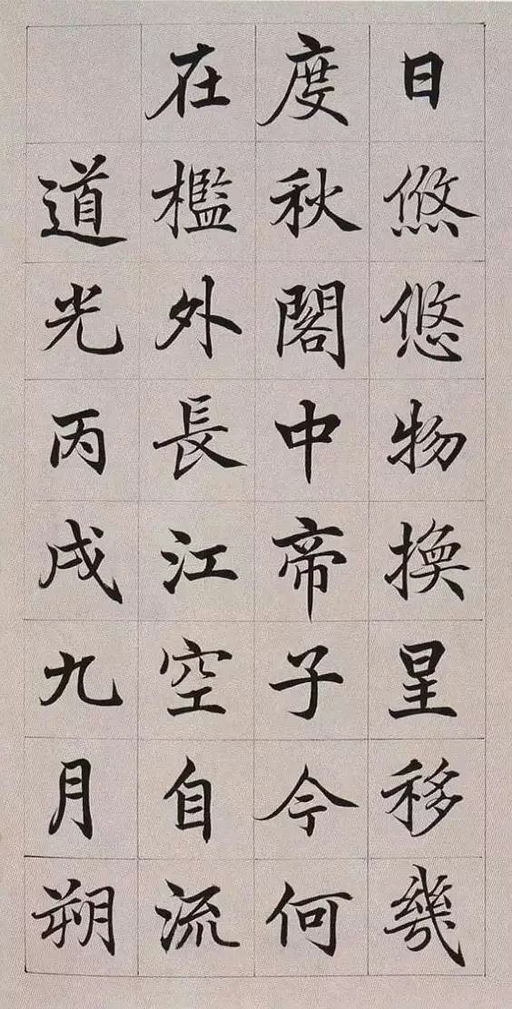 日悠悠物換星移幾
度秋閣中帝子今何
在檻外長江空自流
道光丙戌九月朔